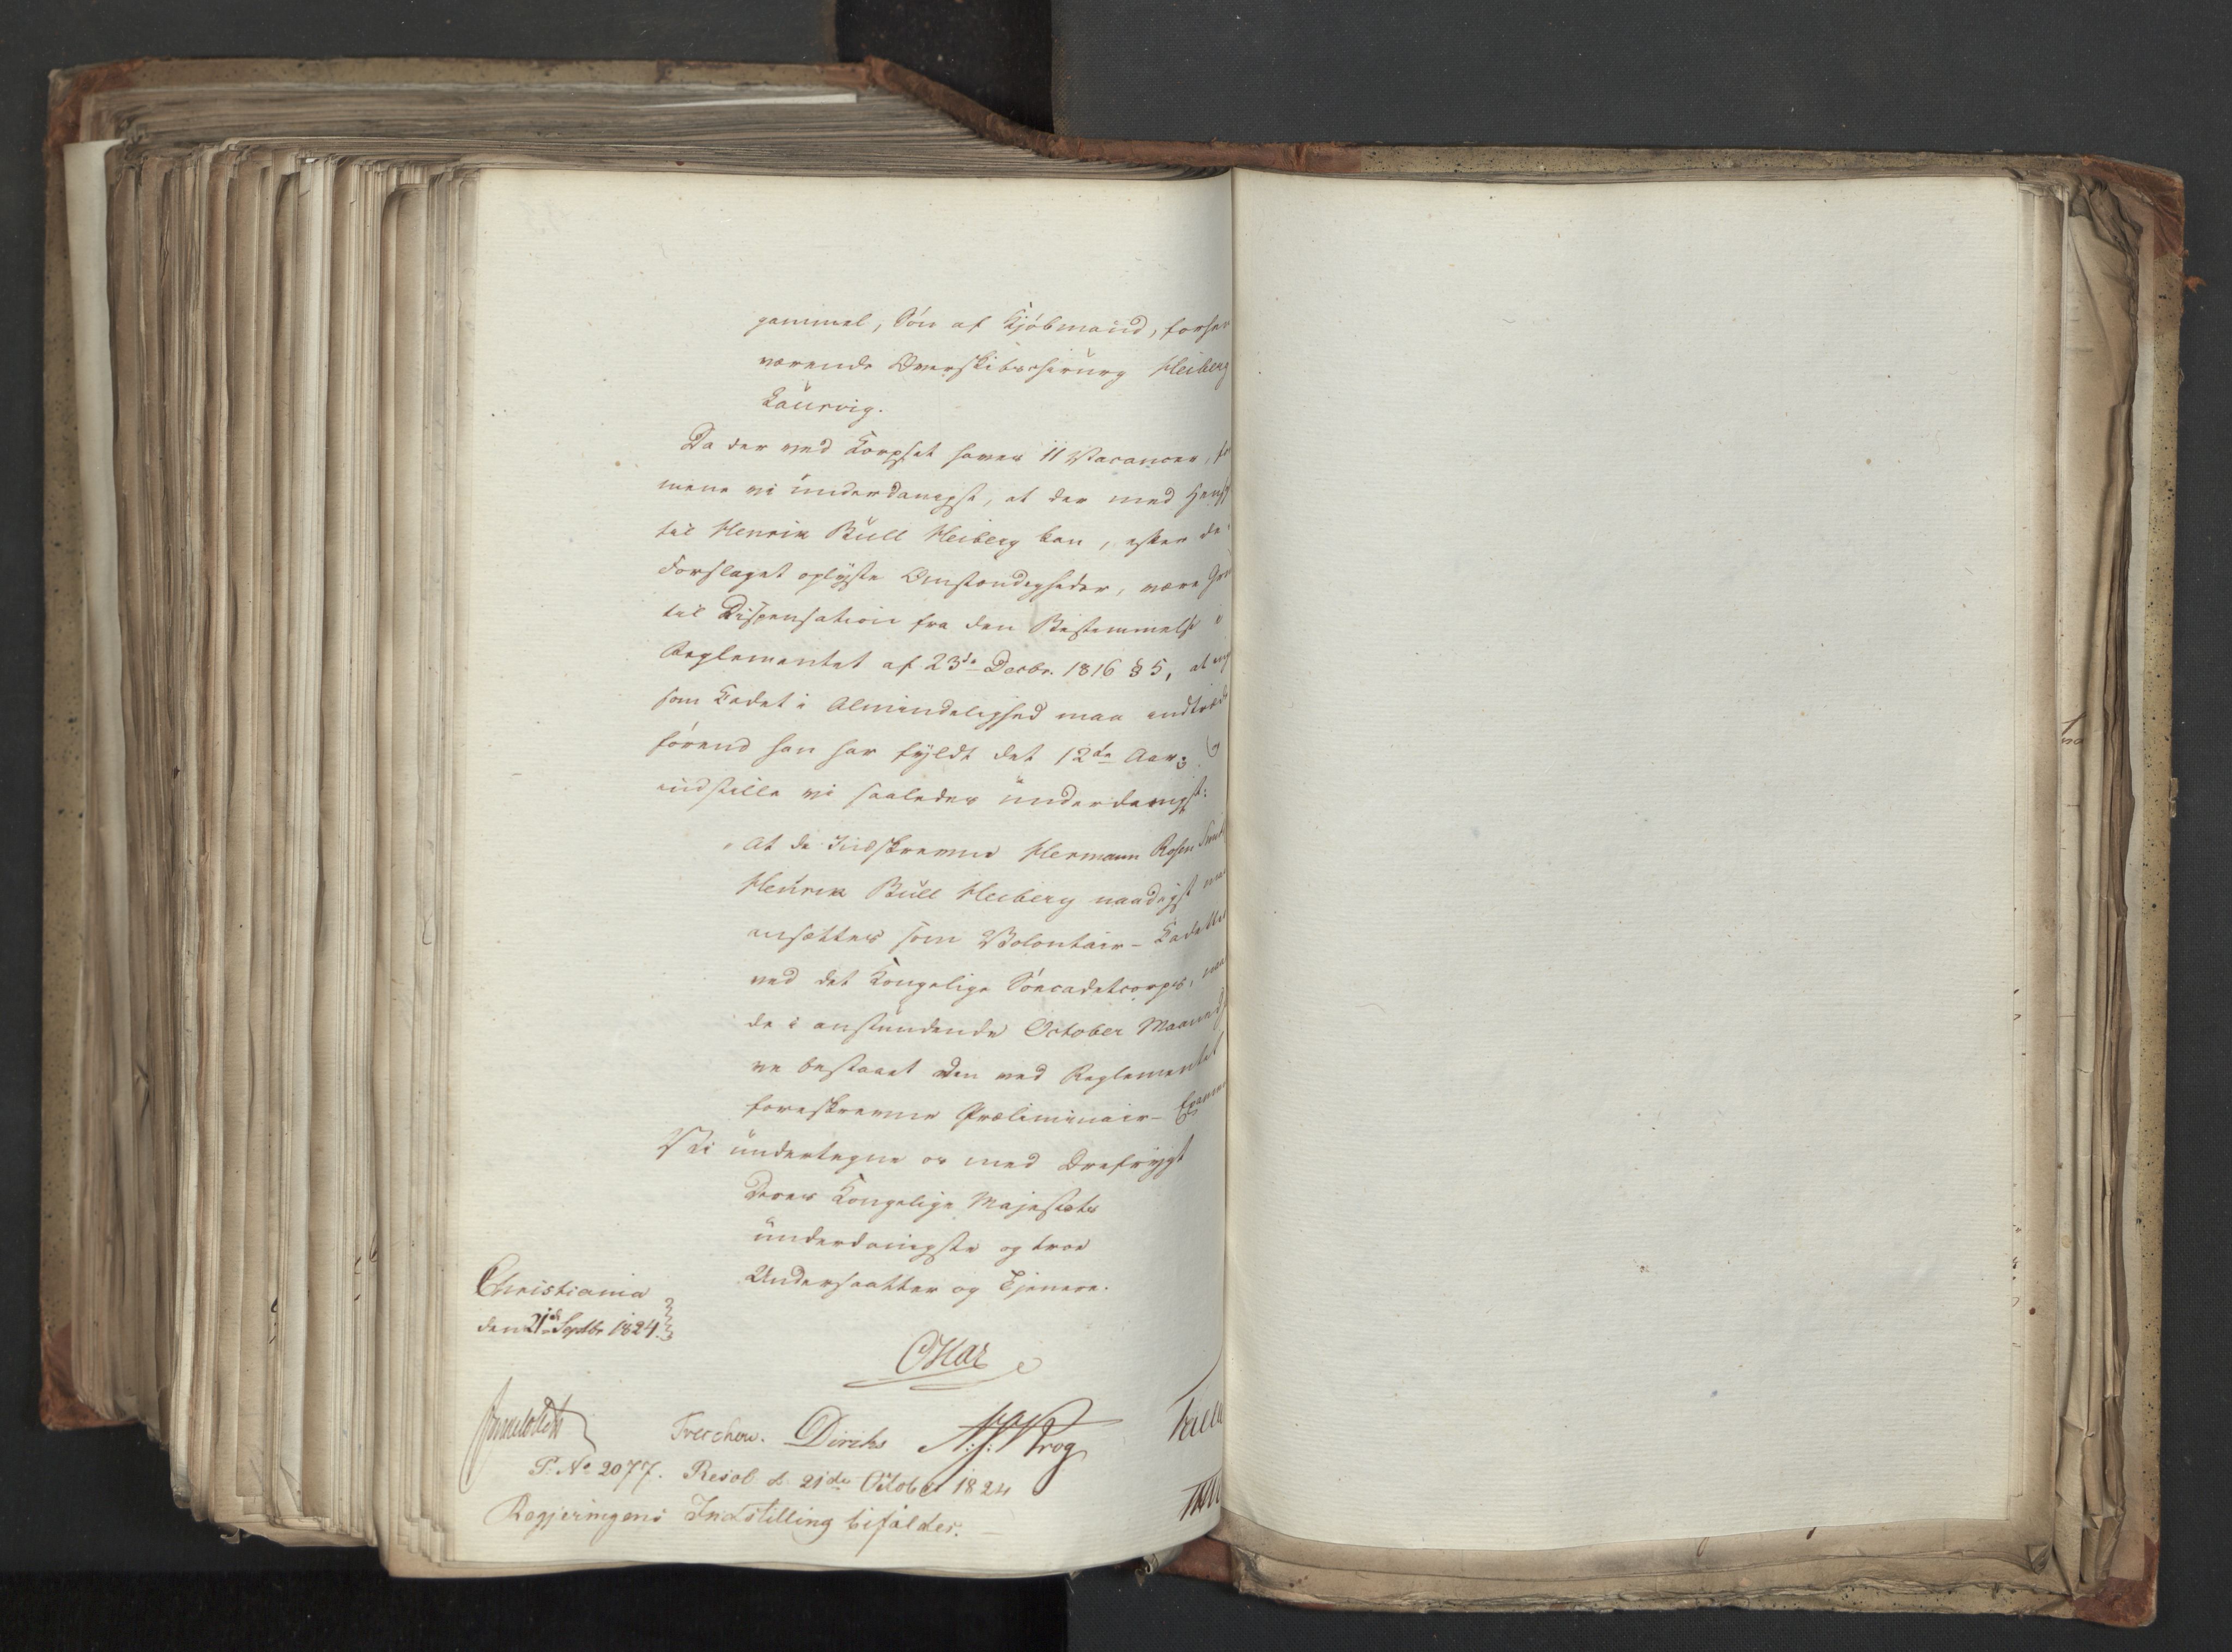 gammel, Søn af Kjøbmand, forhen
værende Overskibschirurg Heiberg
Laurvig.
Da der ved Korpset haves 11 Vacancer, for
mene vi underdanigst, at der med Hensyn
til Henrik Bull Heiberg kan, efter de i
Forslaget oplyste Omstændigheder, være Grund
til Dispensation fra den Bestemmelse i
Reglementet af 23de Decbr. 1816 § 5, at ingen
som Kadet i Almindelighed maa indtræde
førend han har fyldt det 12te Aar; og
indstille vi saaledes underdanigst:
"At de Indskrevne Hermann Rosen Smith
Henrik Bull Heiberg naadigst maa
ansættes som Volontair-Kadetter
ved det Kongelige Søecadetcorps, naar
de i anstundende October Maaned ha
ve bestaaet den ved Reglementet
foreskrevne Præliminair-Examen
Vi undertegne os med Ærefrygt
Deres Kongelige Majestæts
underdanigste og troe
Undersaatter og Tjenere.
Christiania
den 21de Septbr 1824.
Oskar
Treschow. Diriks
Krog
P. No 2077. Resol. d. 21de October 1824
Regjeringens Indstilling bifaldes. —